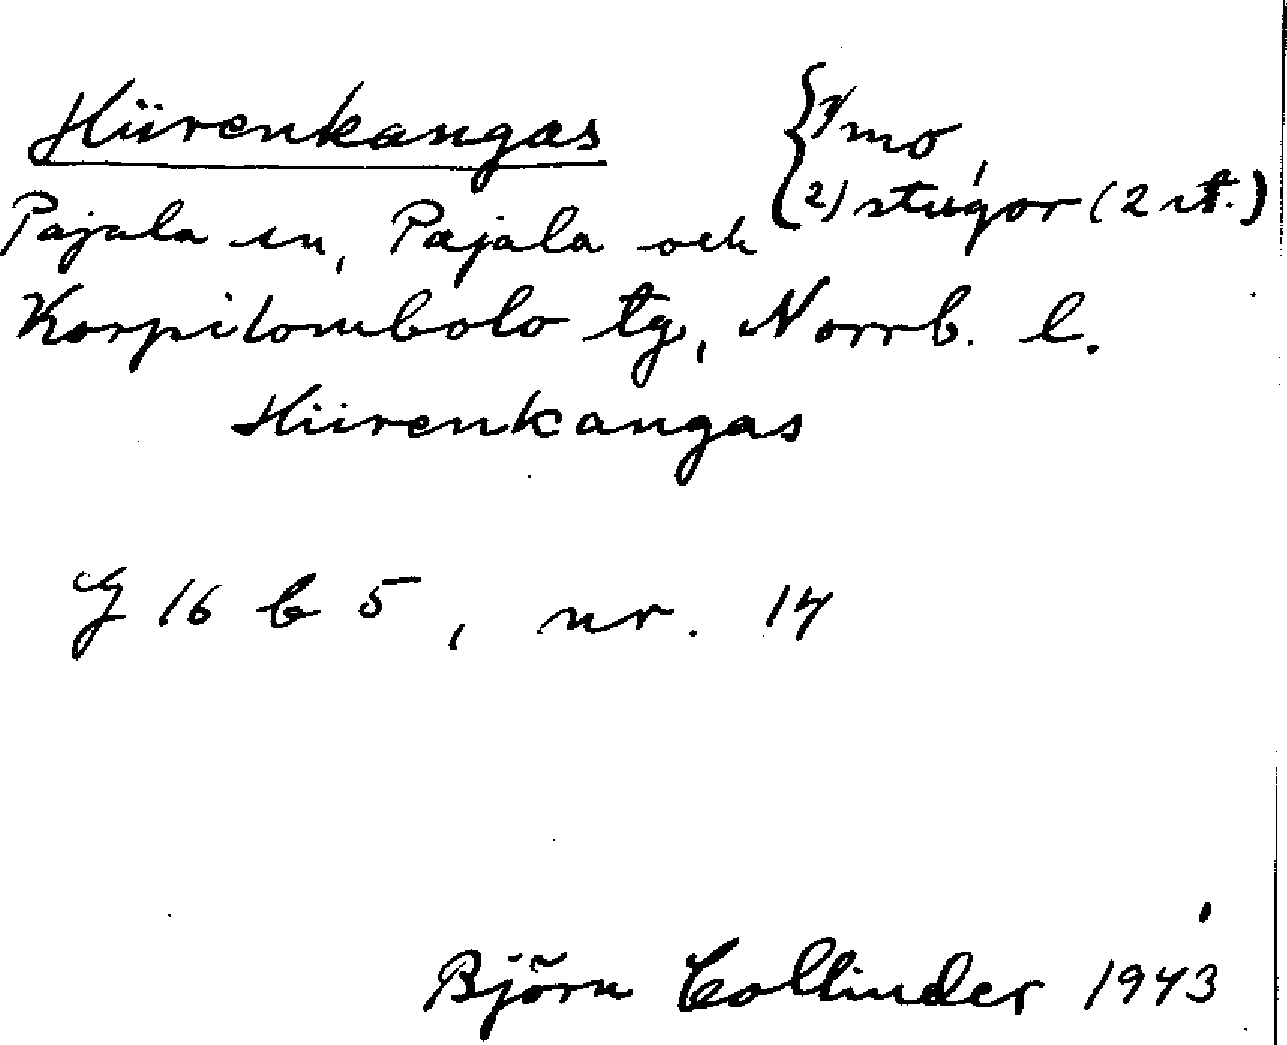 Hiirenkangas
{1) mo
(2) stugor (2 st.)
Pajala sn, Pajala och
Korpilombolo tg, Norrb. l.
Hiirenkangas
G 16 b 5, nr. 14
Björn Collinder 1943